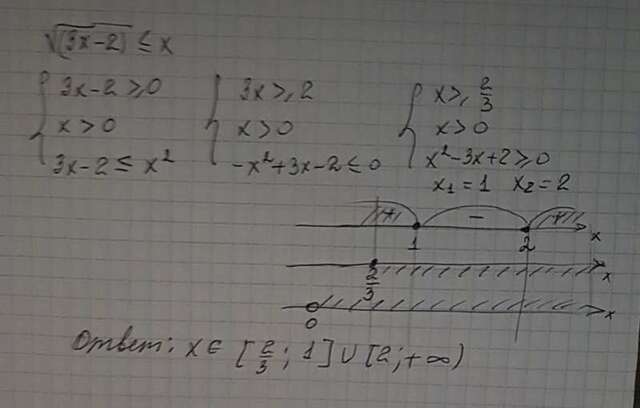 √(3x-2) ≤ x
{ 3x-2 ≥ 0 { 3x ≥ 2 { x ≥ 2/3
x > 0 x > 0 x > 0
3x-2 ≤ x² -x²+3x-2 ≤ 0 x²-3x+2 ≥ 0
x₁=1 x₂=2
+ - +
1 2 x
2/3 x
0 x
Ответ: x ∈ [2/3; 1] ∪ [2; +∞)